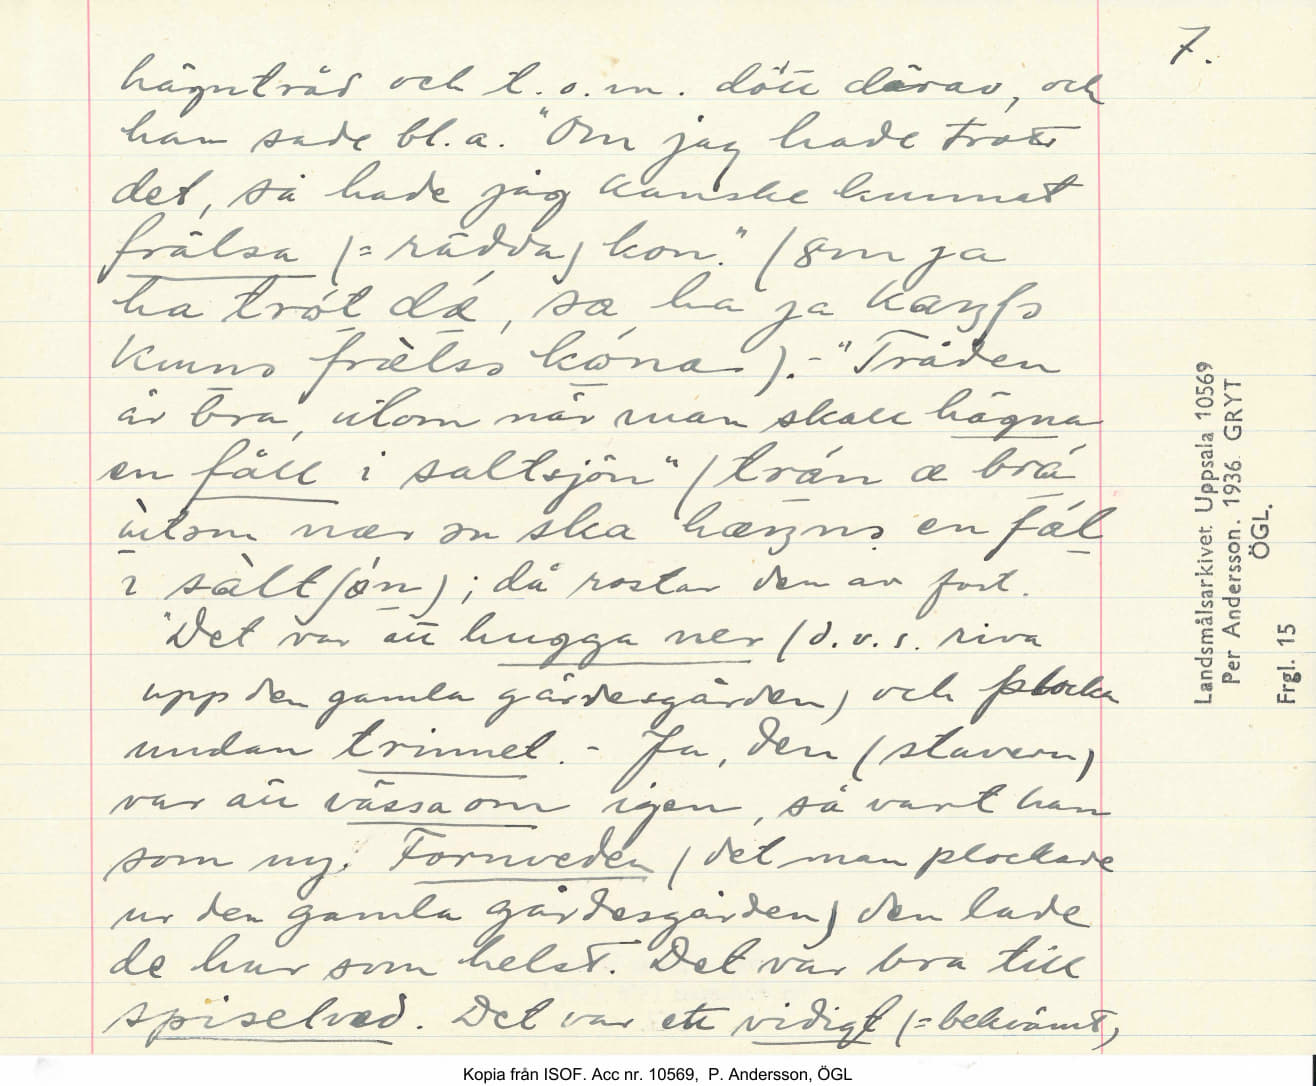 7.
hägnträd och t.o.m. dött därav, och
han sade bl.a. "Om jag hade trott
det, så hade jag kanske kunnat
frälsa (= rädda) kon." (
ha trót dá, sæ ha ja
frælsə kóna). - "Tråden
är bra, utom när man skall hägna
en fåll i saltsjön" (trán æ brá
ùtom nær ska en fál
i sàltʃön); då rostar den av fort.
"Det var att hugga ner (d.v.s. riva
upp den gamla gärdesgården) och plocka
undan trinnet. - Ja, den (stavern)
var att vässa om igen, så vart han
som ny. Fornveden (det man plockade
ur den gamla gärdesgården) den lade
de hur som helst. Det var bra till
spiselved. Det var ett vidigt (= bekvämt,
Landsmålsarkivet Uppsala 10569
Per Andersson. 1936. GRYT
ÖGL.
Frgl. 15
Kopia från ISOF. Acc nr. 10569, P. Andersson, ÖGL